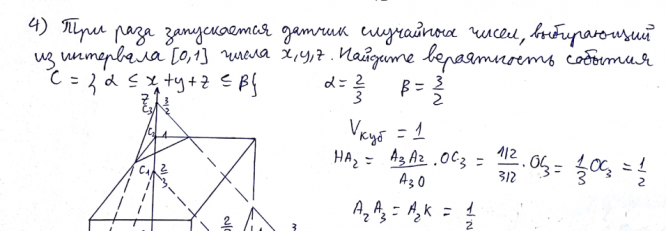 4) Три раза запускается датчик случайных чисел, выбирающий
из интервала [0,1] числа x,y,z. Найдите вероятность события
C = { α ≤ x+y+z ≤ β} α = 2/3 β = 3/2
z
C₃ 3/2
C₂ 1
C₁ 2/3
Vкуб = 1
HA₂ = A₃A₂/A₃O · OC₃ = 1/2/3/2 · OC₃ = 1/3 OC₃ = 1/2
A₂A₃ = A₂K = 1/2